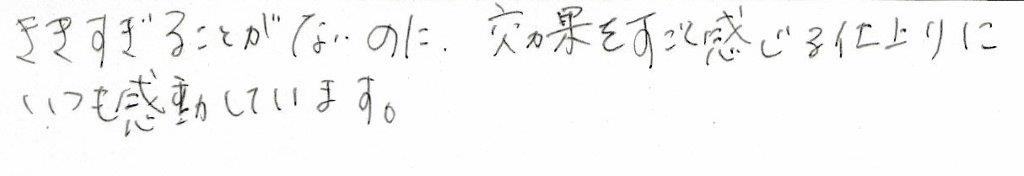 ききすぎることがないのに、効果をすごく感じる仕上りに
いつも感動しています。